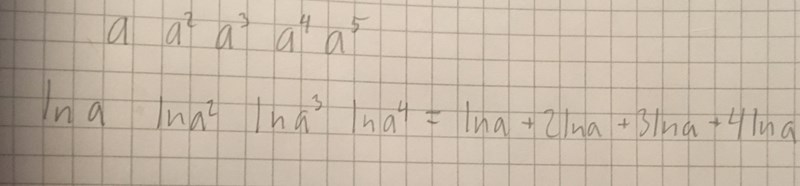 a a² a³ a⁴ a⁵
ln a ln a² ln a³ ln a⁴ = ln a + 2 ln a + 3 ln a + 4 ln a